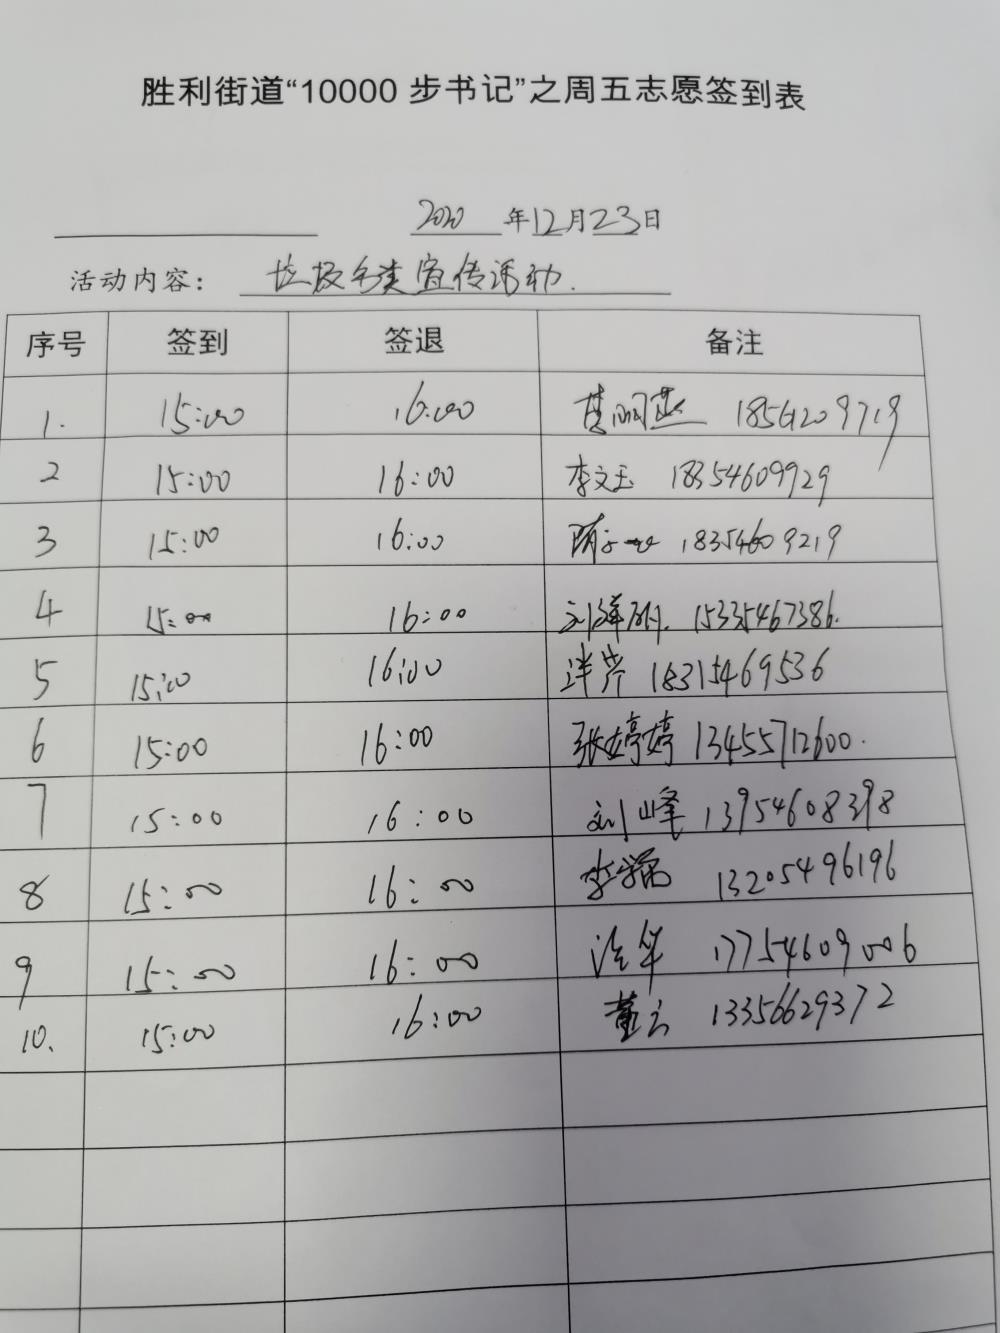 胜利街道“10000 步书记”之周五志愿签到表
2020 年 12 月 23 日
活动内容： 垃圾分类宣传活动.
序号 签到 签退 备注
1. 15:00 16:00 18561209719
2 15:00 16:00 李文玉 18354609929
3 15:00 16:00 18354609219
4 15:00 16:00 15335467386.
5 15:00 16:00 18315469536
6 15:00 16:00 张婷婷 13455712600.
7 15:00 16:00 刘峰 13954608398
8 15:00 16:00 13205496196
9 15:00 16:00 17754609006
10. 15:00 16:00 董云 13356629372